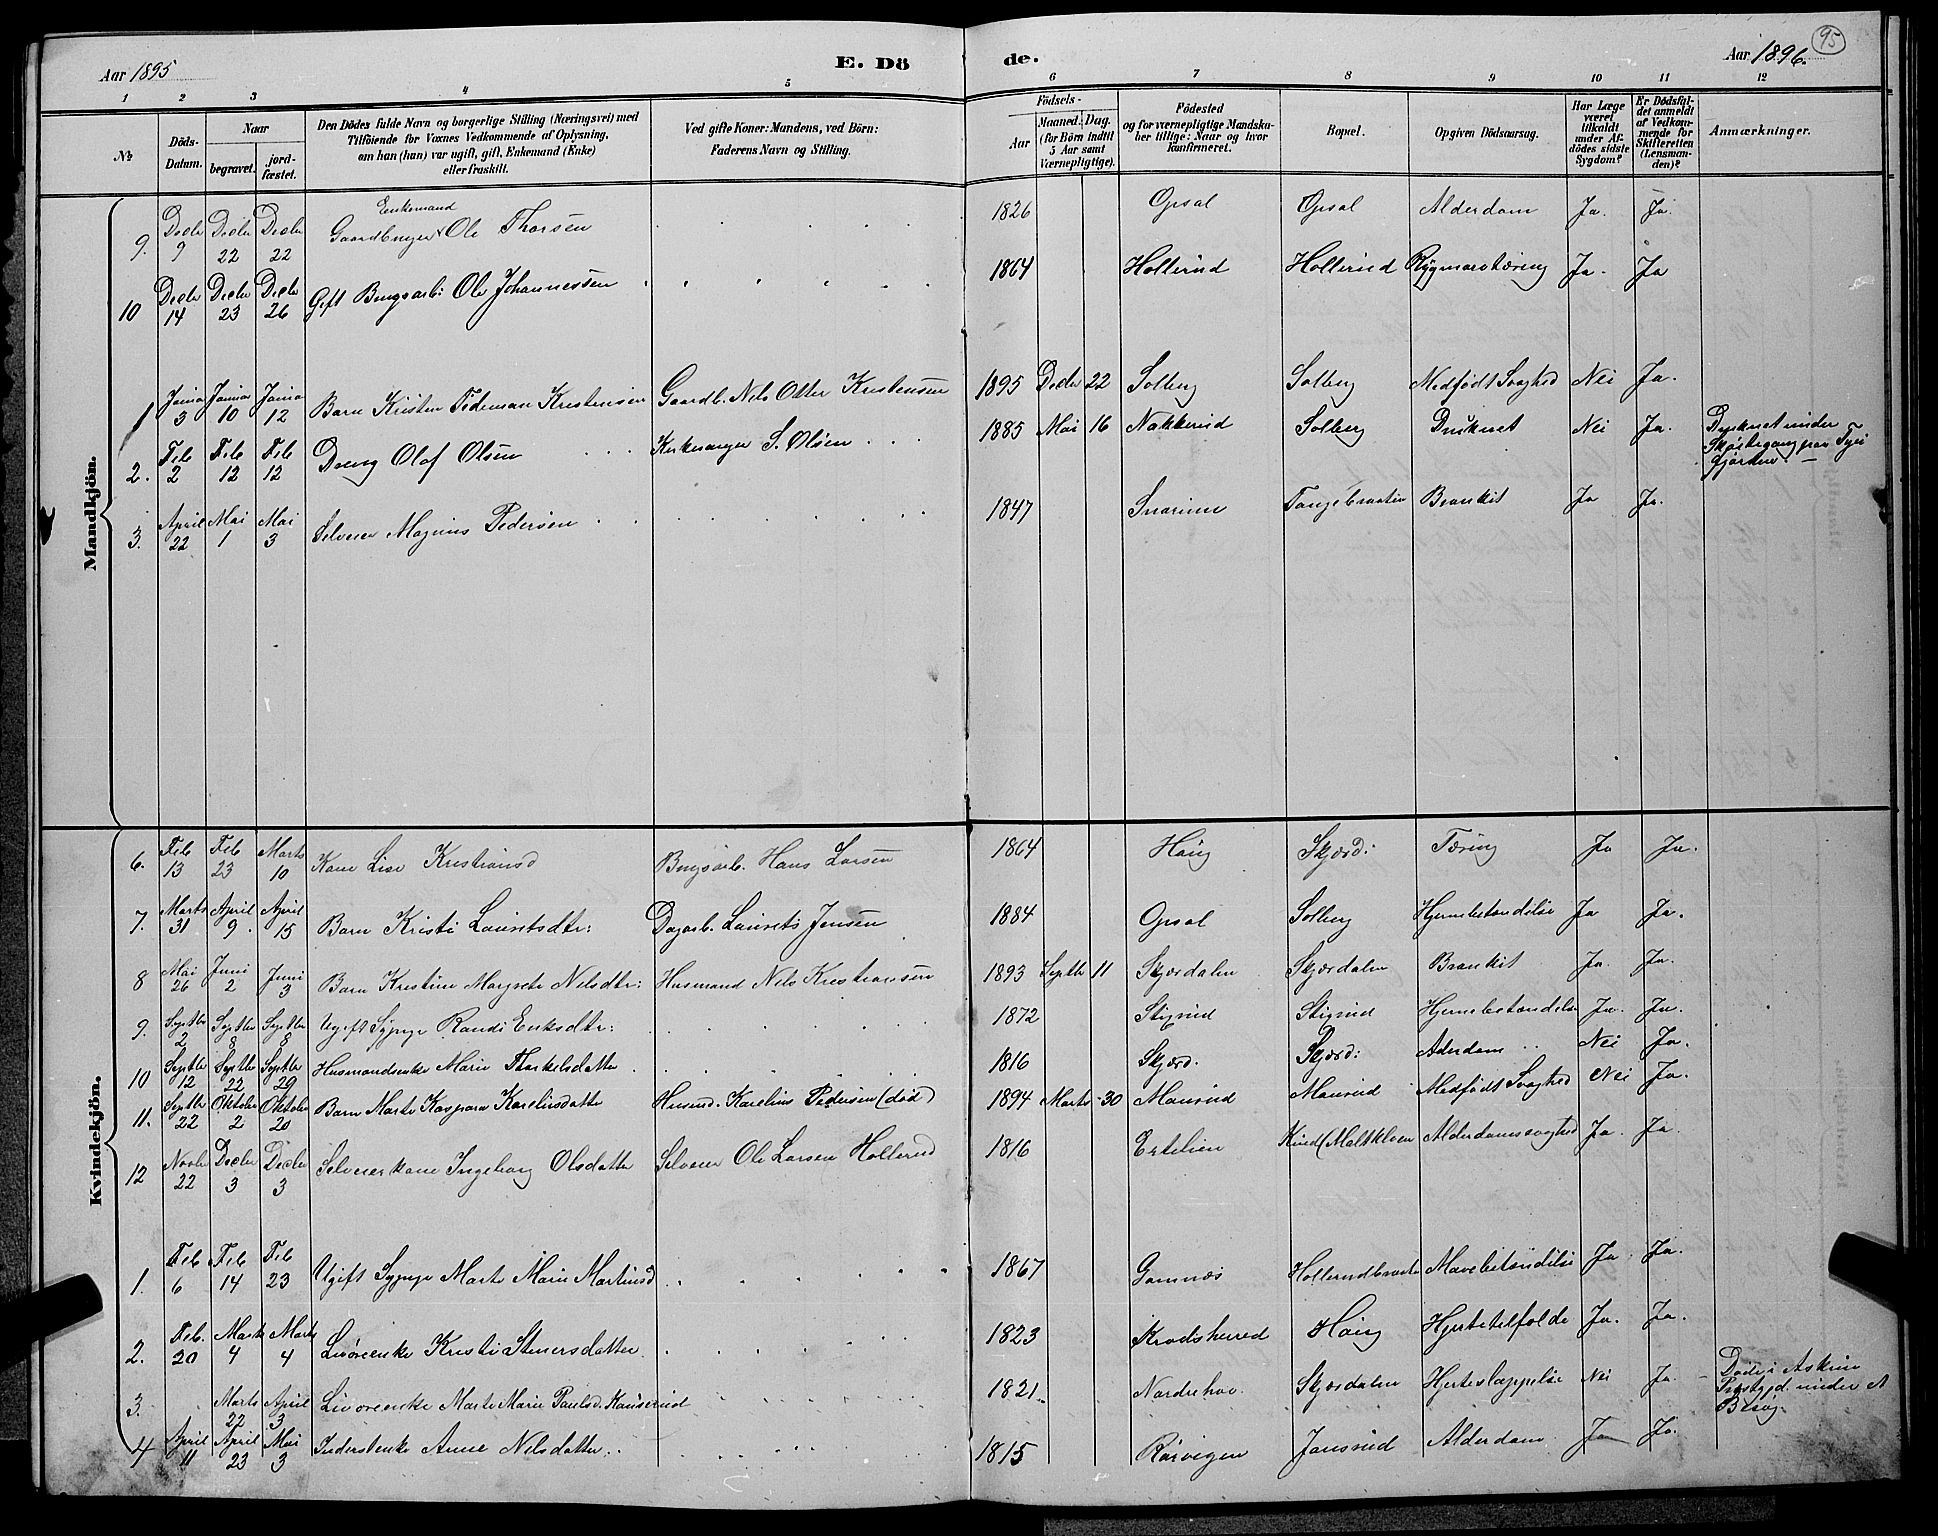 Aar 1895
E. Dö
de.
Aar 1896.
95
1 2 3 4 5 6 7 8 9 10 11 12
No
Döds-Datum.
Naar
begravet.
jord-fæstet.
Den Dödes fulde Navn og borgerlige Stilling (Næringsvei) med
Tilföiende for Voxnes Vedkommende af Oplysning,
om han (hun) var ugift, gift, Enkemand (Enke)
eller fraskilt.
Ved gifte Koner: Mandens, ved Börn:
Faderens Navn og Stilling.
Födsels-
Aar
Maaned.
Dag.
(for Börn indtil
5 Aar samt
Værnepligtige).
Födested
og for værnepligtige Mandska-
ber tillige: Naar og hvor
konfirmeret.
Bopæl.
Opgiven Dödsaarsag.
Har Læge
været
tilkaldt
under Af-
dödes sidste
Sygdom?
Er Dödsfal-
det anmeldt
af Vedkom-
mende for
Skifteretten
(Lensman-
den)?
Anmærkninger.
Mandkjön.
9. Decbr 9 Decbr 22 Decbr 22 Gaardbruger Enkemand Ole Thorsen 1826 Opsal Opsal Alderdom Ja. Ja.
10 Decbr 14 Decbr 23 Decbr 26 Gift Brugsarb: Ole Johannessen 1864 Hollerud Hollerud Rygmarvstæring Ja. Ja
1 Januar 3 Januar 10 Januar 12 Barn Kristen Tideman Kristensen Gaardb. Nels Otter Kristensen 1895 Decbr 22 Solberg Solberg Medfödt Svaghed Nei Ja.
2. Feb 2 Feb 12 Feb 12 Dreng Olof Olsen Kirkesanger S. Olsen 1885 Mai 16 Nakkerud Solberg Druknet Nei Ja. Druknet under
Skøitegang paa Tyri
fjorden.
3. April 22 Mai 1 Mai 3 Selveier Magnus Pedersen 1847 Snarum Tangebraaten Bronkit Ja Ja.
Kvindekjön.
6. Feb 13 Feb 23 Marts 10 Kone Lise Kristiansd Brugsarb. Hans Larsen 1864 Haug Skjærd: Tæring Ja Ja.
7. Marts 31 April 9 April 15 Barn Kristi Lauritsdtr: Dagarb. Laurits Jensen 1884 Opsal Solberg Hjernebetændelse Ja Ja.
8 Mai 26 Juni 2 Juni 3 Barn Kristine Margrete Nilsdtr: Husmand Nils Kristiansen 1893 Septbr 11 Skjærdalen Skjærdalen Bronkit Ja. Ja.
9. Septbr 2 Septbr 8 Septbr 8 Ugift Sypige Randi Eriksdtr: 1872 Stigrud Stigrud Hjernebetændelse Ja. Ja.
10 Septbr 12 Septbr 22 Septbr 29 Husmandsenke Marie Thorkelsdatter 1816 Skjærd. Skjærd: Aderdom Nei Ja.
11. Septbr 22 Oktober 2 Oktober 20 Barn Marte Kaspara Karelinsdatter Husmd. Karelius Pedersen (död) 1894 Marts 30 Maurud Maurud Medfödt Svaghed Nei Ja.
12 Novbr 22 Decbr 3 Decbr 3 Selveierkone Ingeborg Olsdatter Selveier Ole Larsen Hollerud 1816 Ertelien Kind (Maltkloen Alderdomssvaghed Ja. Ja.
1. Feb 6 Feb 14 Feb 23 Ugift Sypige Marte Marie Martinsd 1867 Gomnæs Hollerudbraaten Mavebetændelse Ja. Ja.
2. Feb. 20 Marts 4 Marts 4 Livöreenke Kristi Stenersdatter 1823 Krodsherred Haug Hjertetilfælde Ja. Ja.
3. Marts 22 April 3 Livöreenke Marte Marie Paulsd. 1821. Norderhov. Skjærdalen Hjerteslappelse Nei Ja. Död i Askim
Prestgjd. under et
Besøg.
4 April 11 April 23 Mai 3 Inderstenke Anne Nilsdatter 1815 Rörvigen Jonsrud Alderdom Ja Ja.